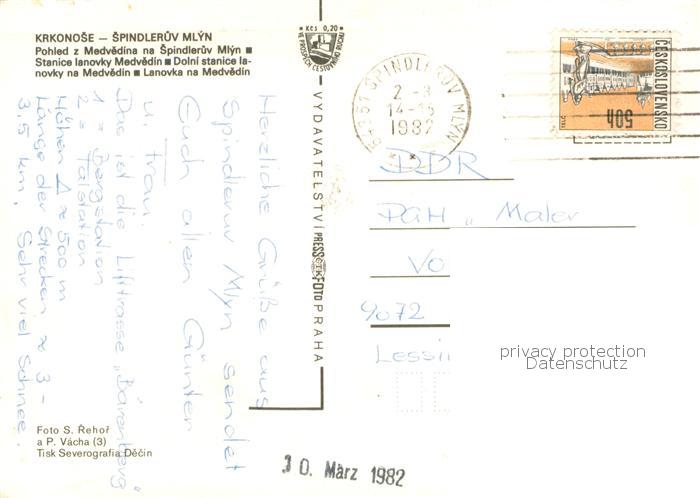 KRKONOŠE — ŠPINDLERŮV MLÝN
Pohled z Medvědína na Špindlerův Mlýn ■
Stanice lanovky Medvědín ■ Dolní stanice la-
novky na Medvědín ■ Lanovka na Medvědín
Kčs 0,20
VE PROSPĚCH CESTOVNÍHO RUCHU
VYDAVATELSTVÍ PRESSFOTO PRAHA
Herzliche Grüße aus
Spindleruv Mlyn sendet
Euch allen Günter
u. Frau.
Das ist die Lifttrasse „Bärenberg"
1 = Bergstation
2 = Talstation
Höhen Δ ≈ 500 m
Länge der Strecken ≈ 3 -
3,5 km, Sehr viel Schnee.
ŠPINDLERŮV MLÝN
14-15
1982
ČESKOSLOVENSKO
50h
DDR
PGH „Maler
Vo
9072
Lessi
privacy protection
Datenschutz
Foto S. Řehoř
a P. Vácha (3)
Tisk Severografia Děčín
30. März 1982